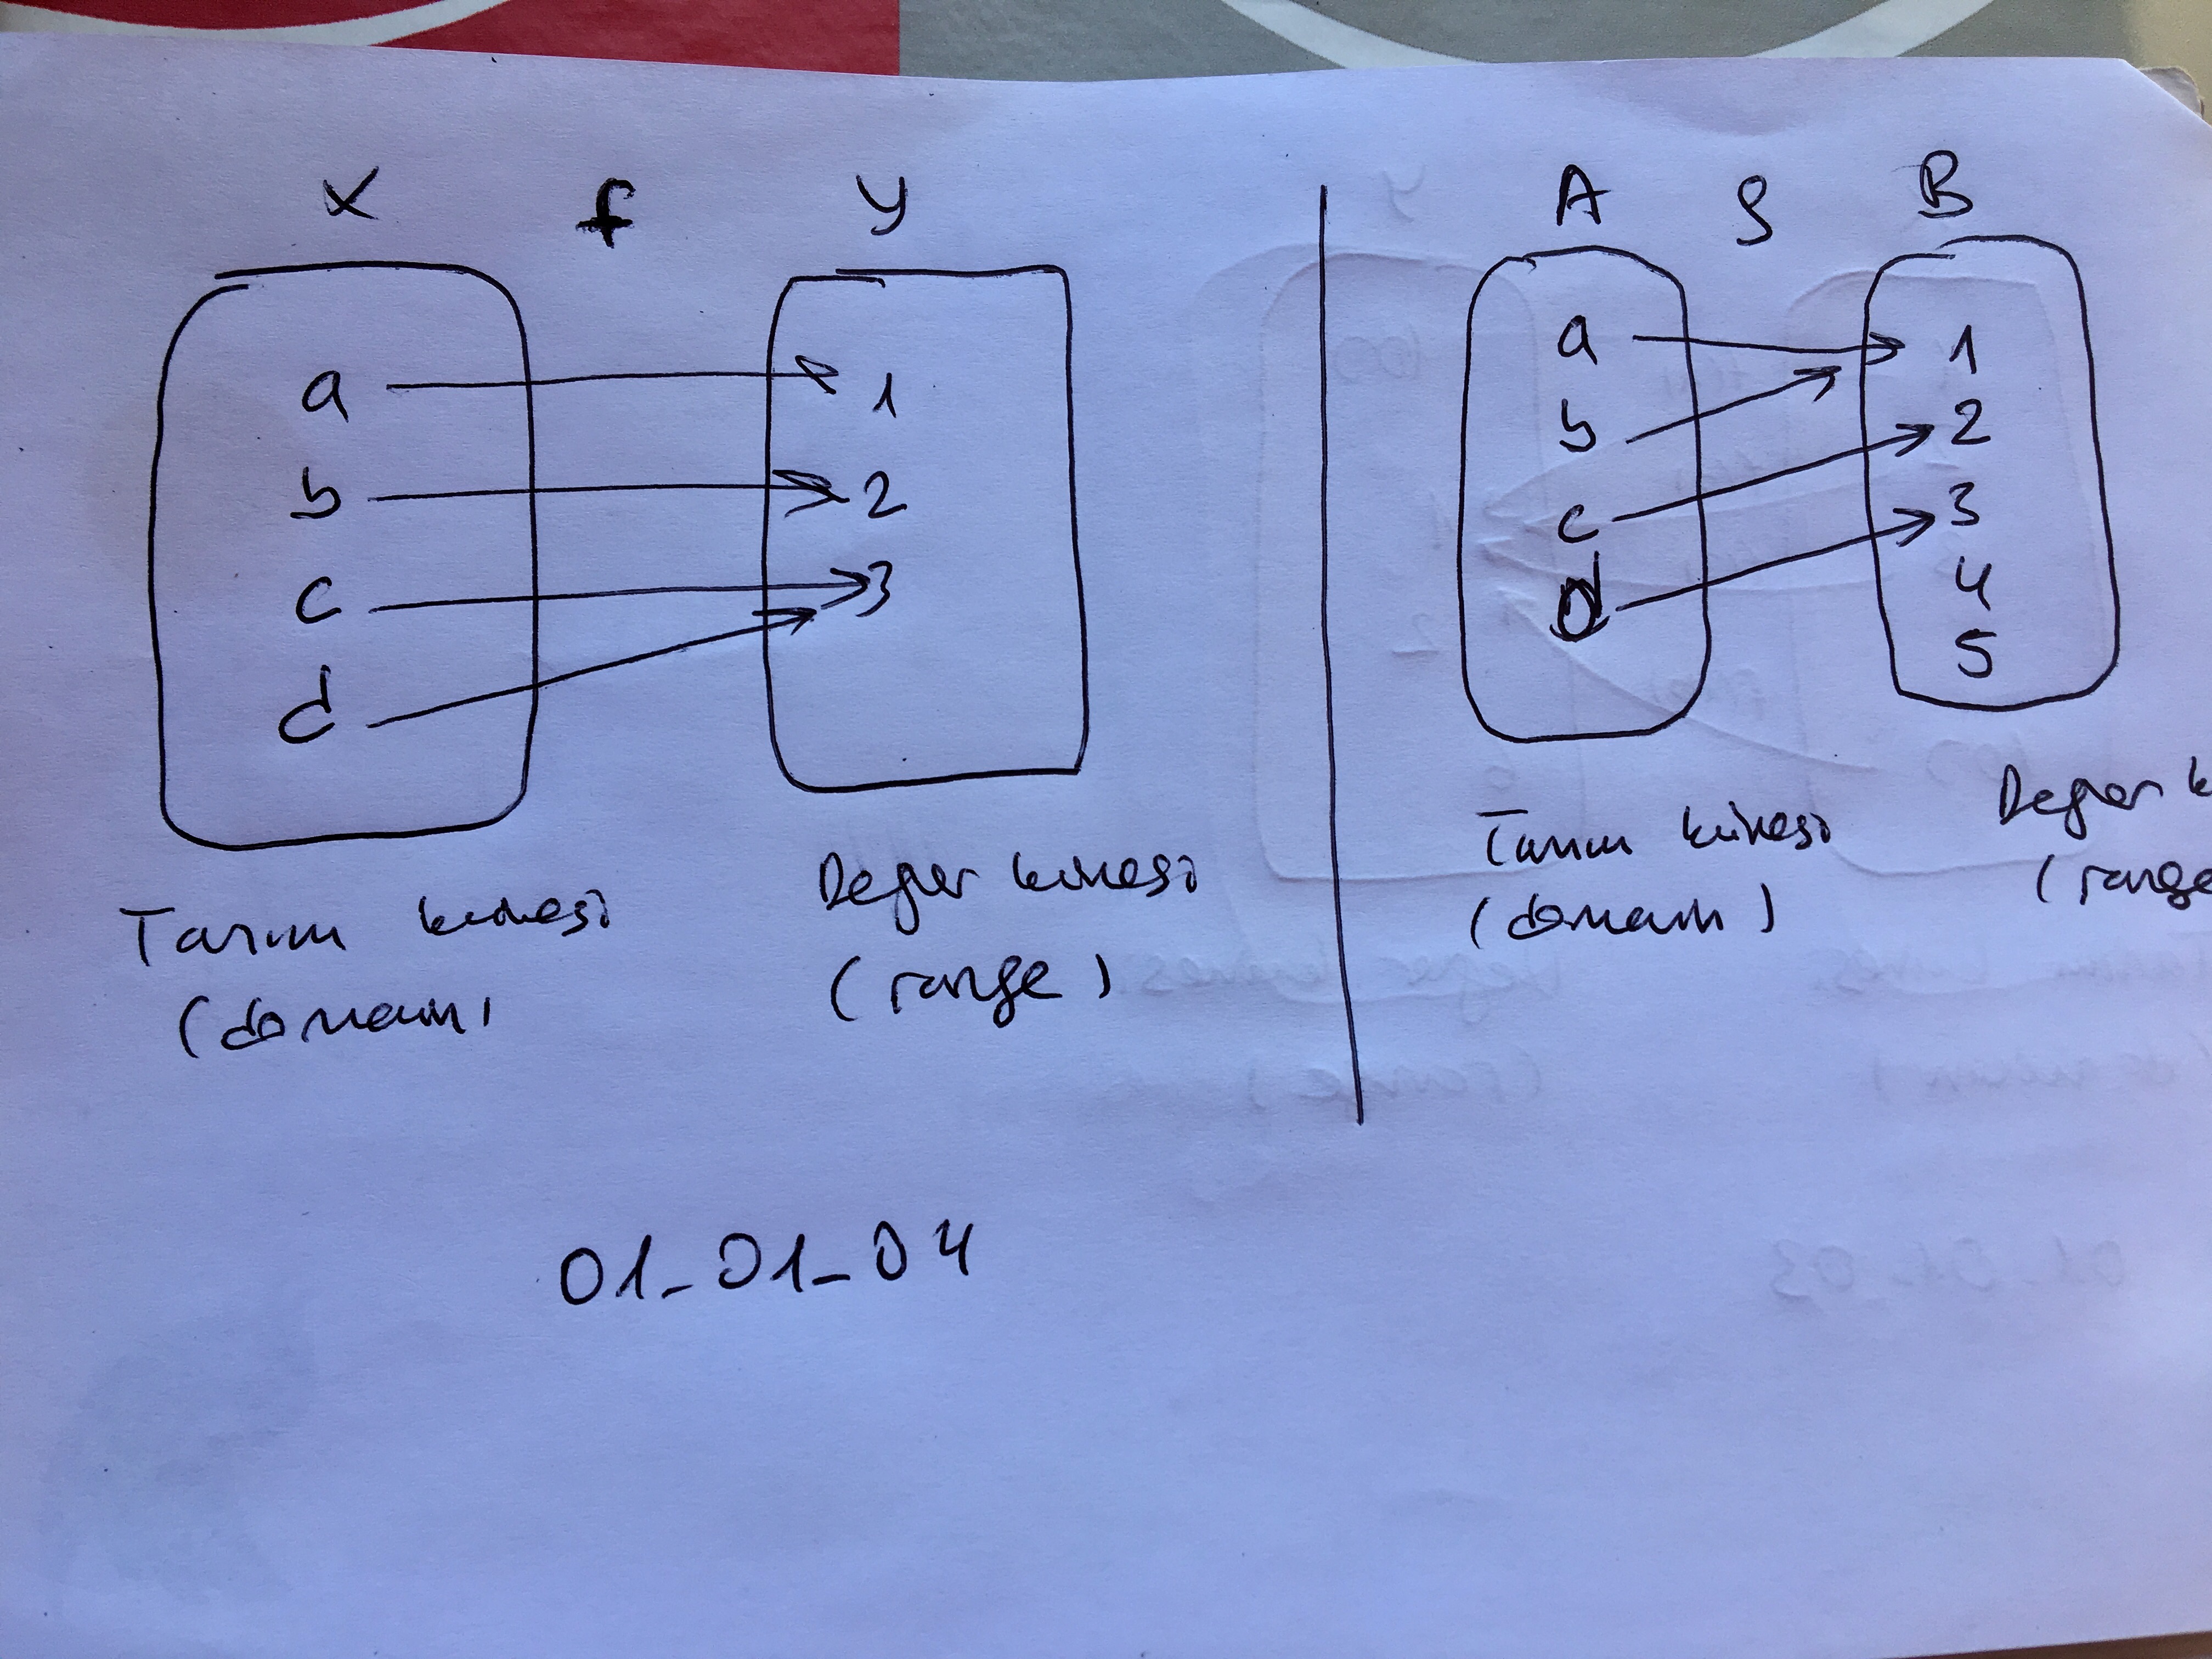 X f y
a 1
b 2
c 3
d
Tanım kümesi
(domain)
Değer kümesi
(range)
A g B
a 1
b 2
c 3
d 4
5
Tanım kümesi
(domain)
Değer k
(range
01_01_04